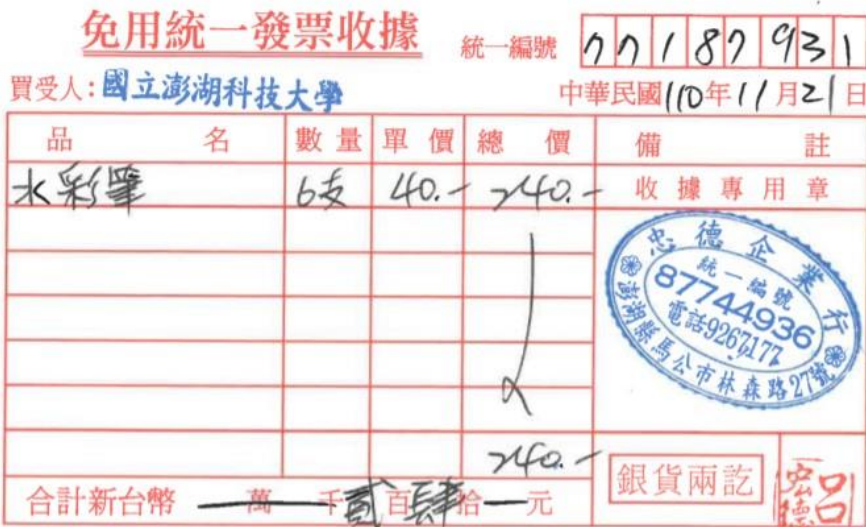 免用統一發票收據 統一編號 77187931
買受人:國立澎湖科技大學 中華民國110年11月21日
品名 數量 單價 總價 備註
水彩筆 6支 40.- 240.- 收據專用章
忠德企業行
統一編號
87744936
電話9267177
澎湖縣馬公市林森路27號
240.-
銀貨兩訖
呂宏德
合計新台幣 萬 千 貳 百 肆 拾 元